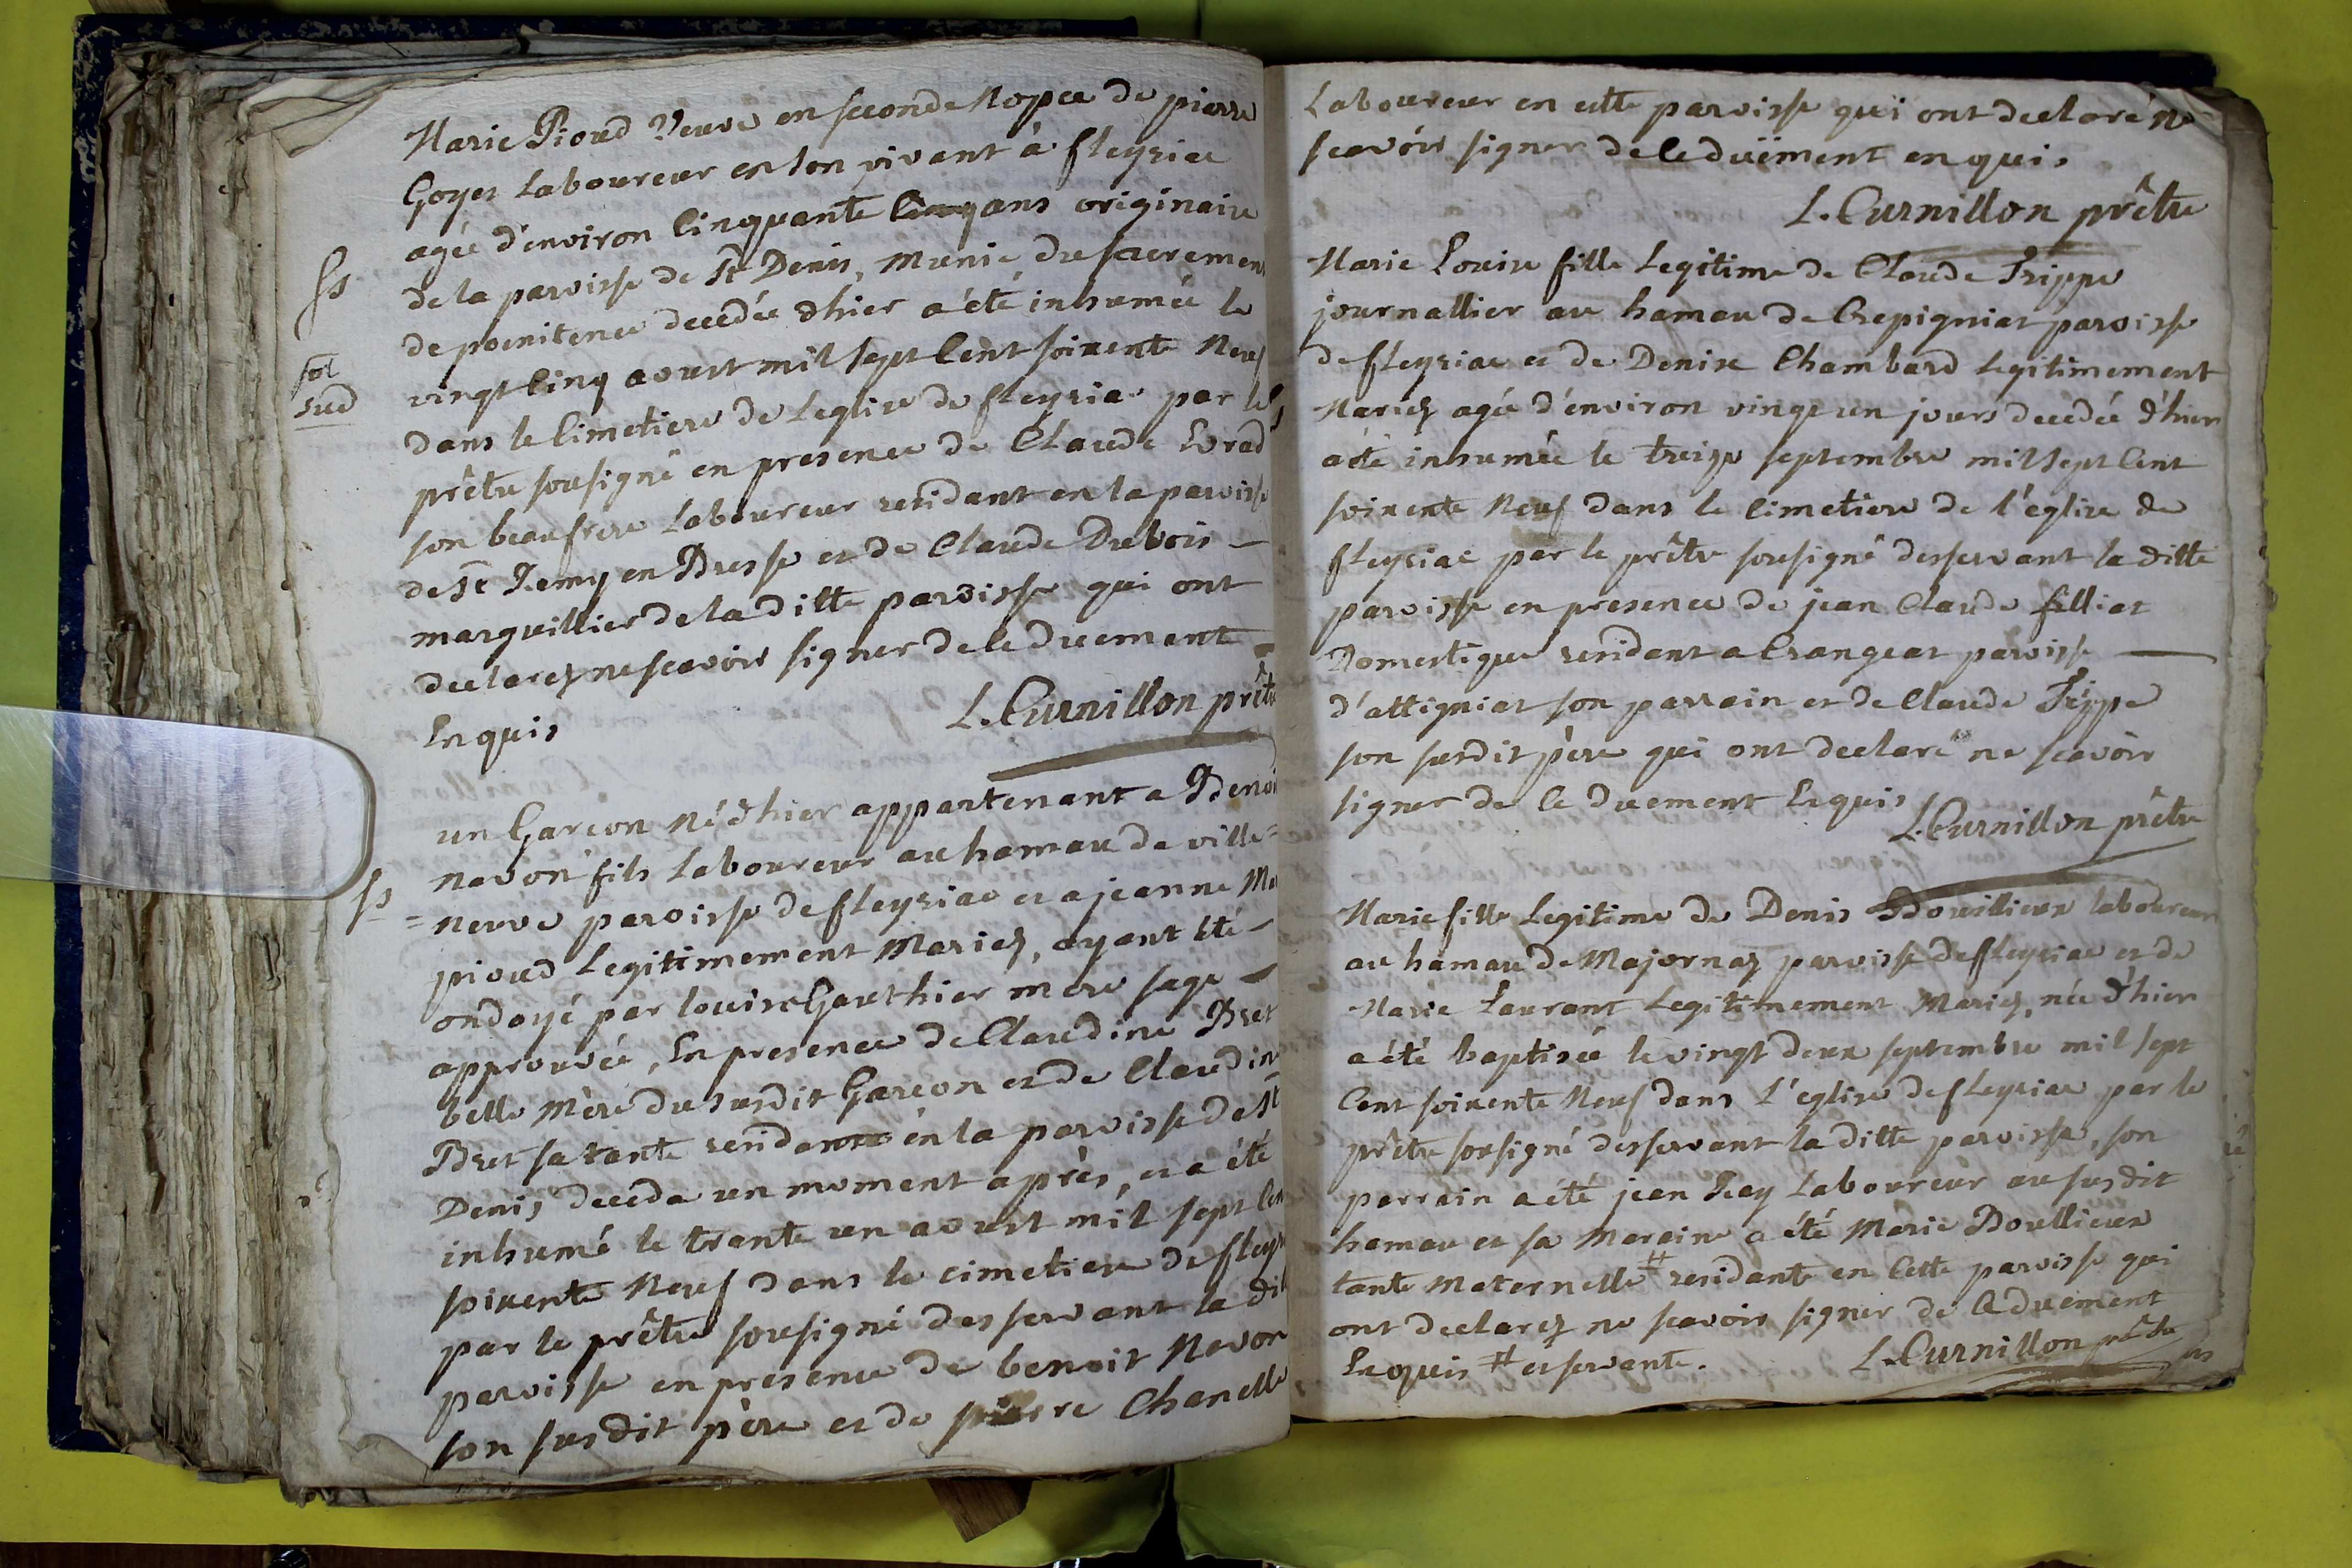 Marie Pioud Veuve en seconde Nopce de pierre
Goyet Laboureur en son vivant à fleyriac
agée d'environ Cinquante ans originaire
de la paroisse de St Denis, munie du sacrement
de poenitence decedée d'hier a été inhumée le
vingt Cinq aoust mil sept Cent soixente Neuf
dans le Cimetiere de Leglise de fleyriac par le
prêtre sousigné en presence de Claude
son beaufrere Laboureur residant en la paroisse
de St Remy en Bresse et de Claude Dubois
marguillier de la ditte paroisse qui ont
declarez ne scavoir signer de ce duement
Enquis
L. Curnillon prêtre
un Garcon né d'hier appartenant a Benoi
Navon fils Laboureur au hamau de ville=
=neuve paroisse de fleyriac et a jeanne Ma
pioud Legitimement Mariez, ayant été
ondoyé par louise Gauthier mere sage
approuvée, En presence de Claudine Bret
belle mère du susdit Garcon et de Claudine
Bret sa tante residante en la paroisse de St
Denis deceda un moment après, et a été
inhumé le trante un aoust mil sept Cen
soixente Neuf dans le cimetiere de fleyr
par le prêtre sousigné desservant la dit
paroisse en presence de benoit Navon
son susdit père et de pierre Chanelle
Laboureur en cette paroisse qui ont declaré Ne
scavoir signer de ce duëment enquis
L. Curnillon prêtre
Marie Louise fille Legitime de Claude Trippe
journallier au hamau de Crepigniat paroisse
de fleyriac et de Denise Chambard Legitimement
Mariez agée d'environ vingt un jours decedée d'hier
a été inhumée le treize septembre mil sept Cent
soixente Neuf dans le Cimetiere de l'église de
fleyriac par le prêtre sousigné desservant la ditte
paroisse en presence de jean Claude filliat
Domestique residant a Crangeat paroisse
d'attigniat son parrain et de Claude Trippe
son susdit père qui ont declaré ne scavoir
signer de ce duement Enquis
L. Curnillon prêtre
Marie fille Legitime de Denis Bouillieux laboureur
au hamau de Majornaz paroisse de fleyriac et de
Marie Laurant Legitimement Mariez, née d'hier
a été baptisée le vingt deux septembre mil sept
Cent soixente Neuf dans L'église de fleyriac par le
prêtre sousigné desservant la ditte paroisse, son
parrain a été jean Ray Laboureur au susdit
hamau et sa Maraine a été Marie Boullieux
tante Maternelle # residante en Cette paroisse qui
ont declarez ne scavoir signer de Ce duement
Enquis # et servante.
L. Curnillon prêtre